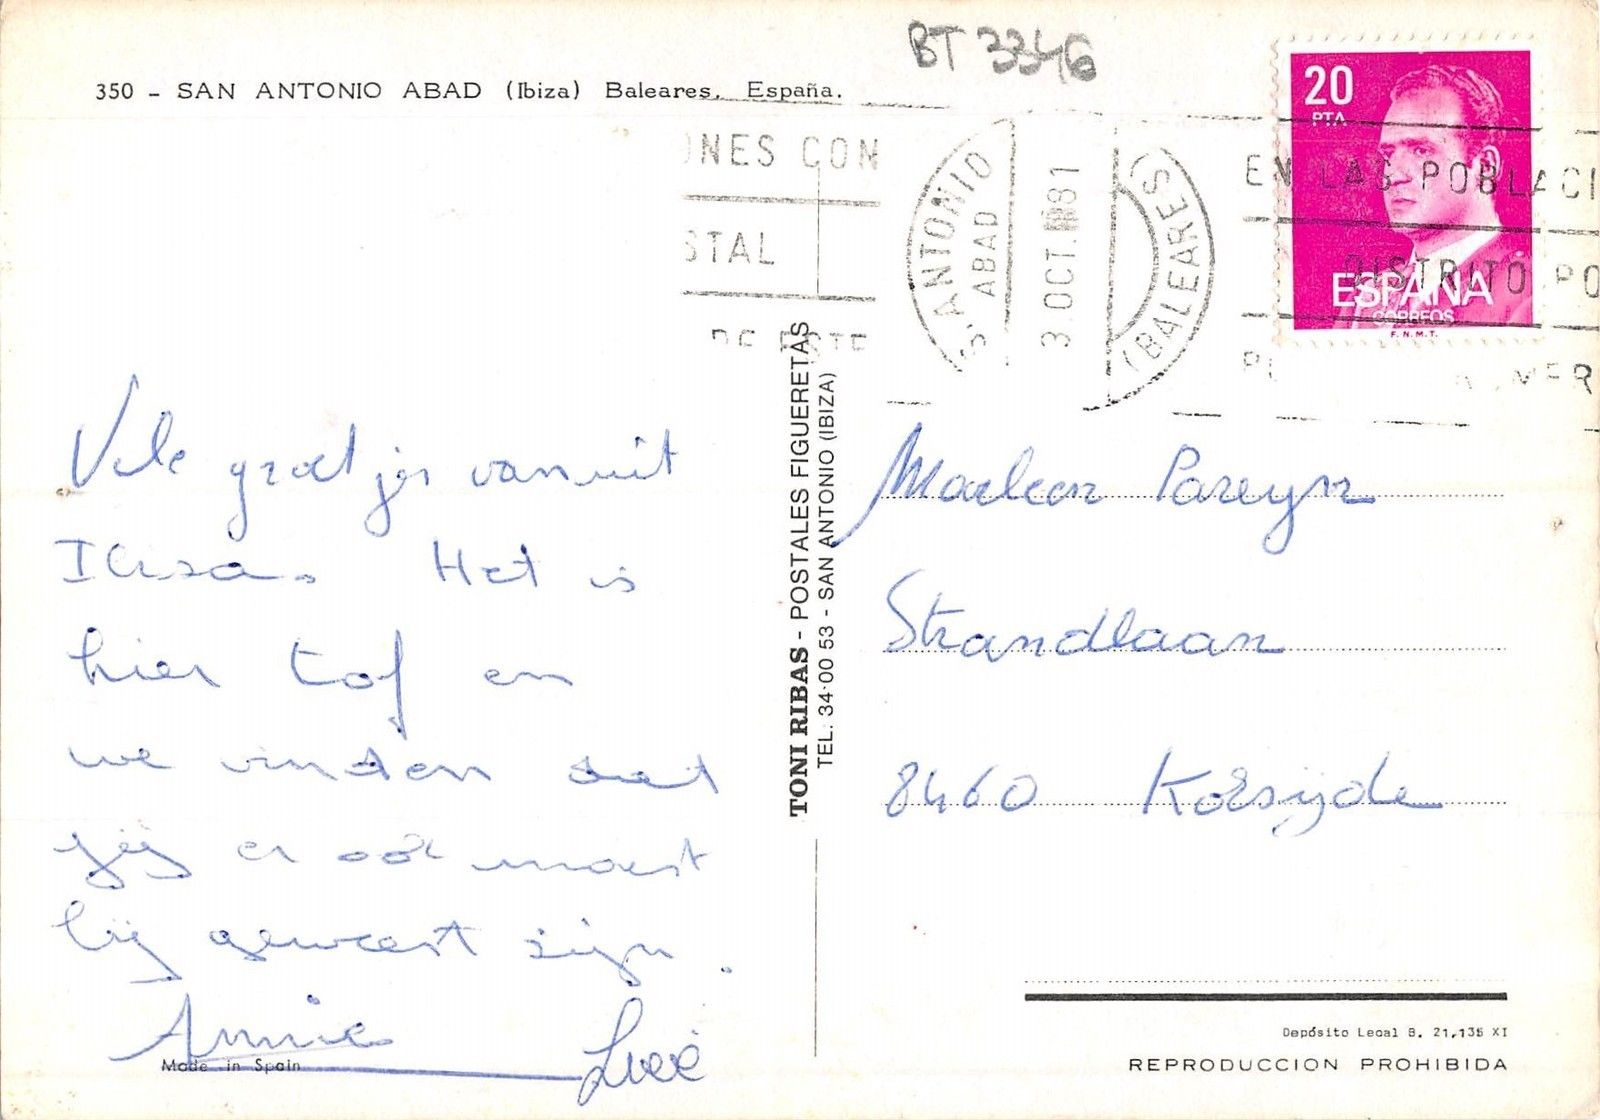 BT 3346
350 - SAN ANTONIO ABAD (Ibiza) Baleares. España.
20
PTA
ESPAÑA
CORREOS
F.N.M.T.
ONES CON
STAL
DE ESTE
S. ANTONIO
ABAD
3.OCT. 81
(BALEARES)
EN LAS POBLACI
DISTRITO PO
Vele groetjes vanuit
Ibiza. Het is
hier tof en
we vinden dat
jij er ook moest
bij geweest zijn.
Annie
Made in Spain
TONI RIBAS - POSTALES FIGUERETAS
TEL. 34·00 53 - SAN ANTONIO (IBIZA)
Marleen Pareyn
Strandlaan
8460 Koksijde
Depósito Legal B. 21,135 XI
REPRODUCCION PROHIBIDA